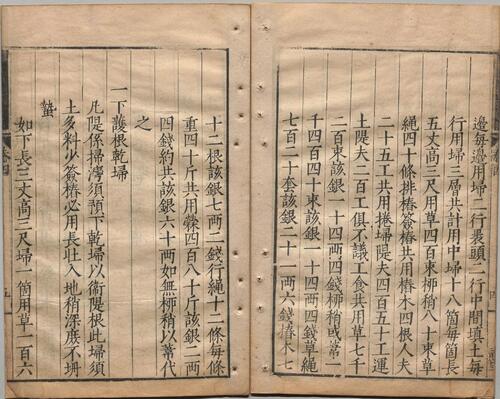 邊每邊用埽二行裹頭二行中間填土每
行用埽三層共計用中埽十八箇每箇長
五丈高三尺用草四百束柳稍八十束草
繩四十條排樁簽樁共用樁木四根人夫
二十五工共用捲埽隄夫四百五十工運
土隄夫二百工俱不議工食共用草七千
二百束該銀一十四兩四錢柳稍或葦一
千四百四十束該銀一十四兩四錢草繩
七百二十套該銀二十一兩六錢樁木七
十二根該銀七兩二錢行繩十二條每條
重四十斤共用檾四百八十斤該銀二兩
四錢約共該銀六十兩如無柳稍以葦代
之
一下護根乾埽
凡隄係埽灣須預下乾埽以衞隄根此埽須
土多料少簽樁必用長壯入地稍深庶不坍
蟄
如下長三丈高三尺埽一箇用草一百六
卷四